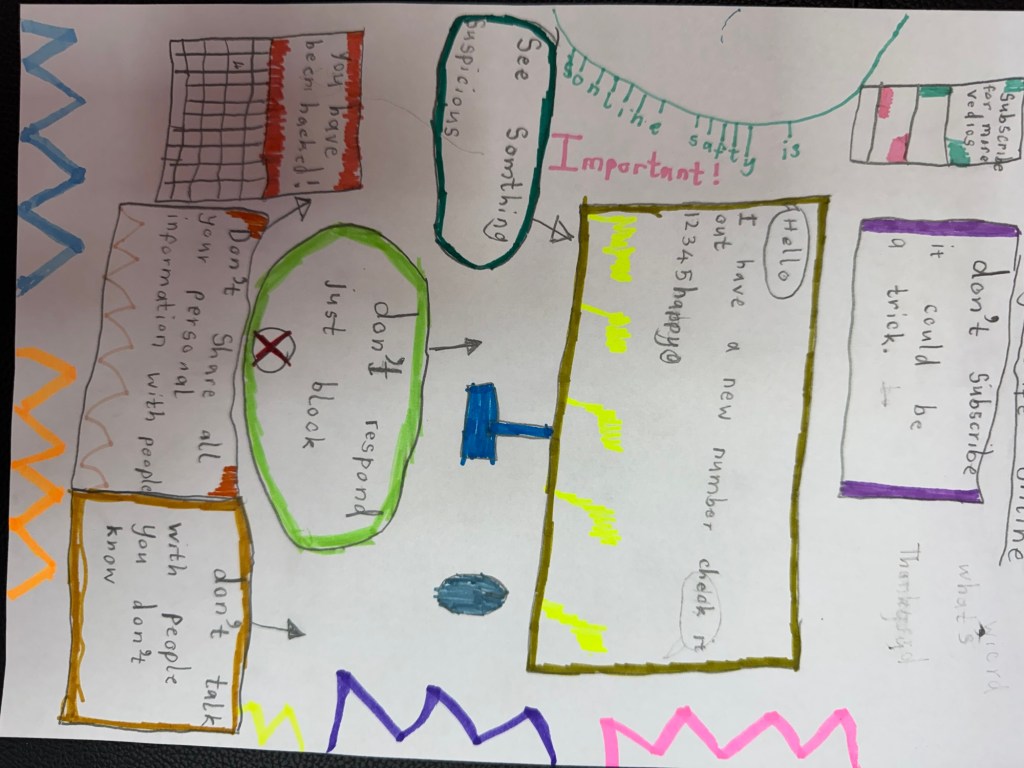 Subscribe
for more
vedios
don't Subscribe
it could be
a trick.
what's
word
is
safty
online
Important!
Hello
I have a new number check it
out
12345happy☺
See Somthing
Suspicious
you have
been hacked!
don't respond
Just block
Don't Share all
your personal
information with people
don't talk
with people
you don't
know